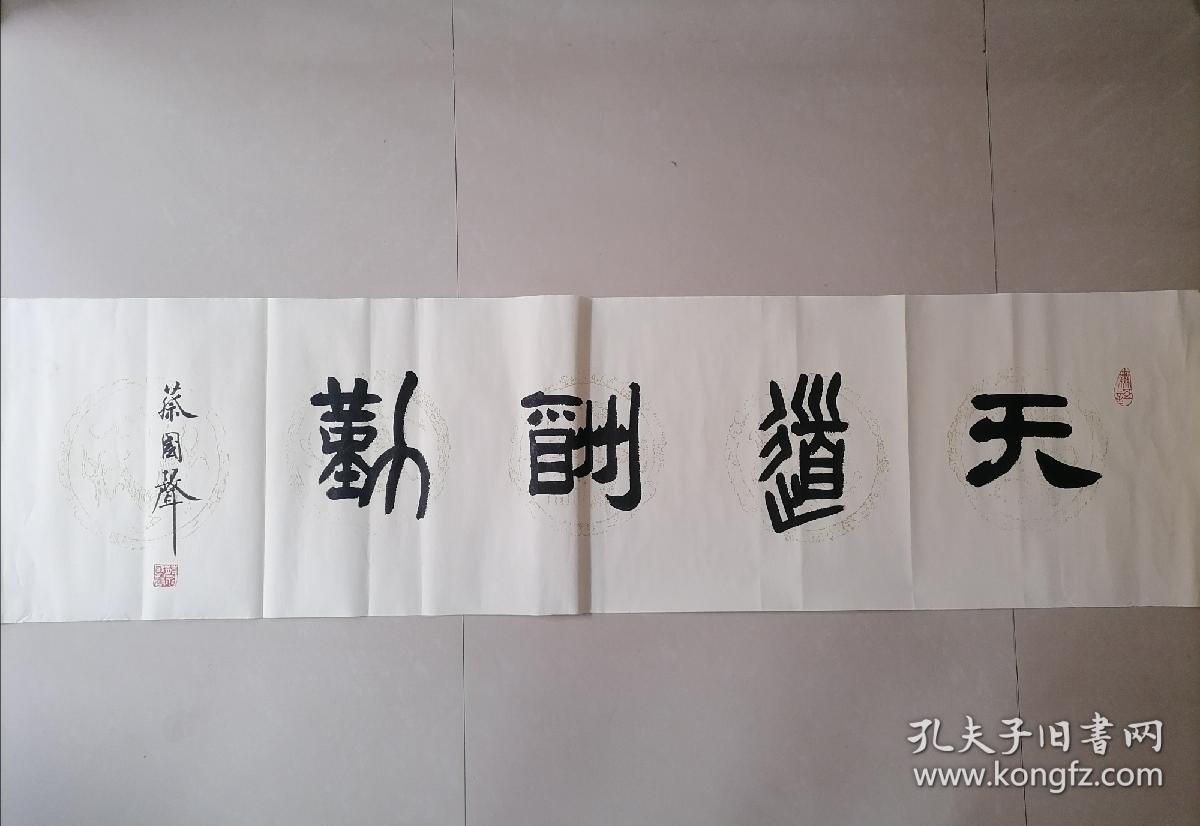 天道酬勤
蔡國聲
孔夫子旧書网
www.kongfz.com